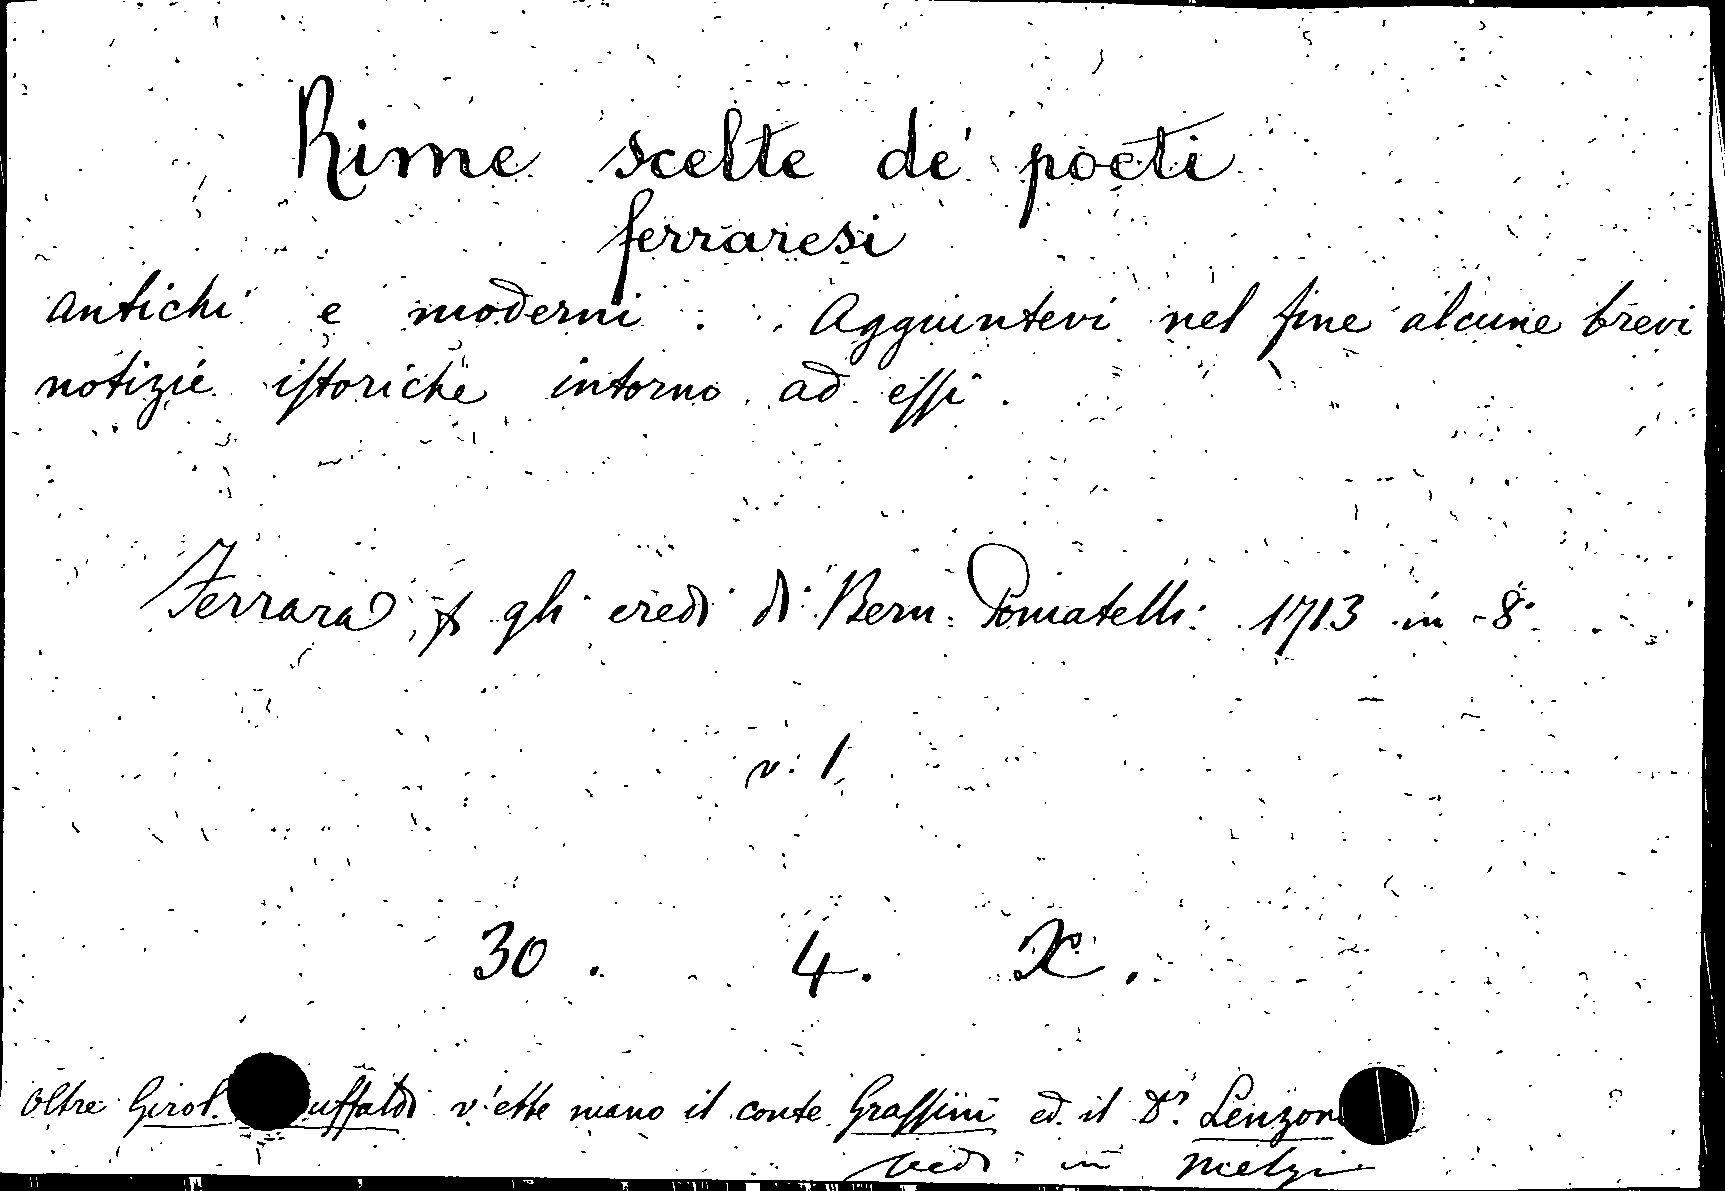 Rime scelte de' poeti
ferraresi
antichi e moderni. Aggiuntevi nel fine alcune brevi
notizie istoriche intorno ad essi.
Ferrara, p gli eredi di Bern. Pomatelli: 1713 in 8°
v. 1
30. 4. X.
Oltre Girol. uffaldi v'ebbe mano il conte Grassini ed il Dr. Lenzoni
vedi in Melzi